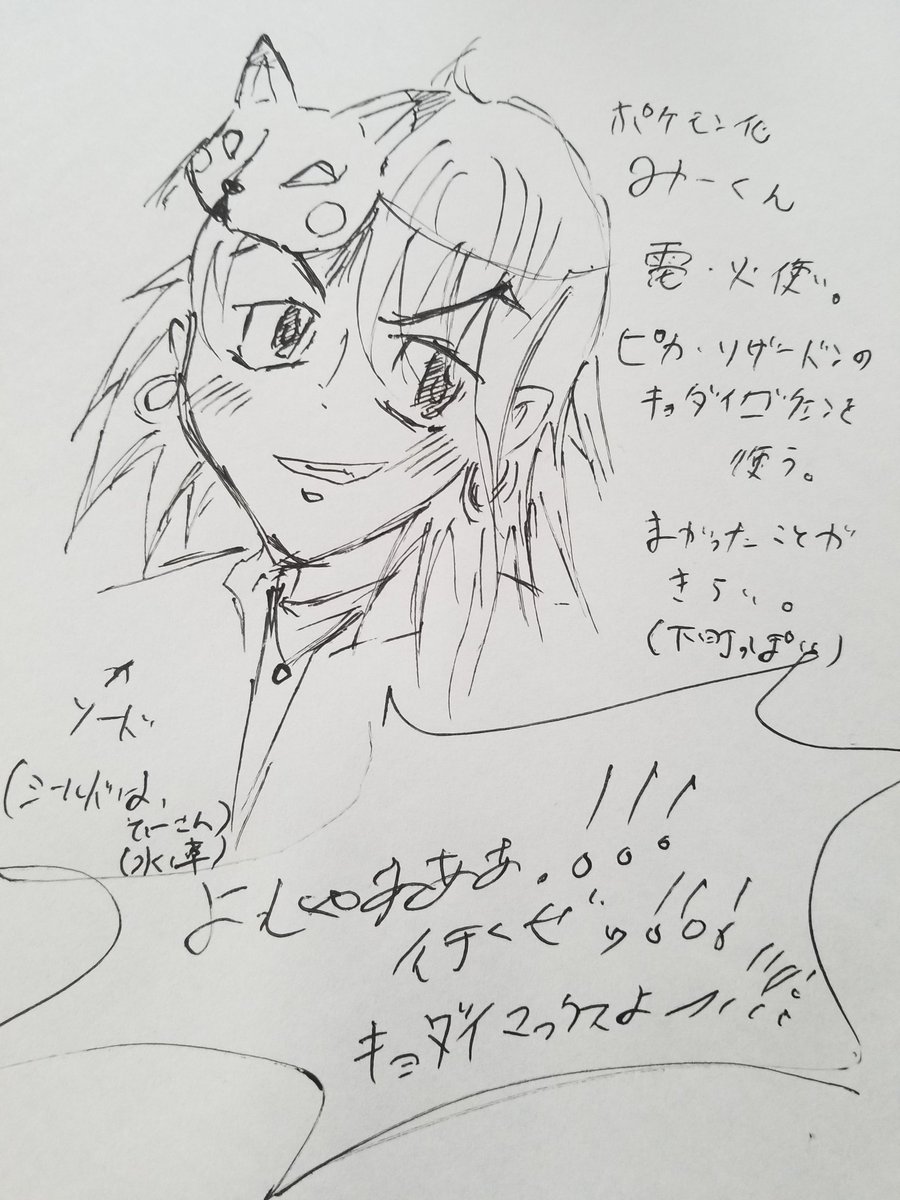 ポケモン化
みーくん
電・火使い。
ピカ・リザードンの
キョダイゴクエンを
使う。
まがったことが
きらい。
(下町っぽい)
ソード
(シールドは、
てぃーさん)
(水・草)
よしゃゃああ。!!!
イチくぜッ!!!
キョダイマックスよー